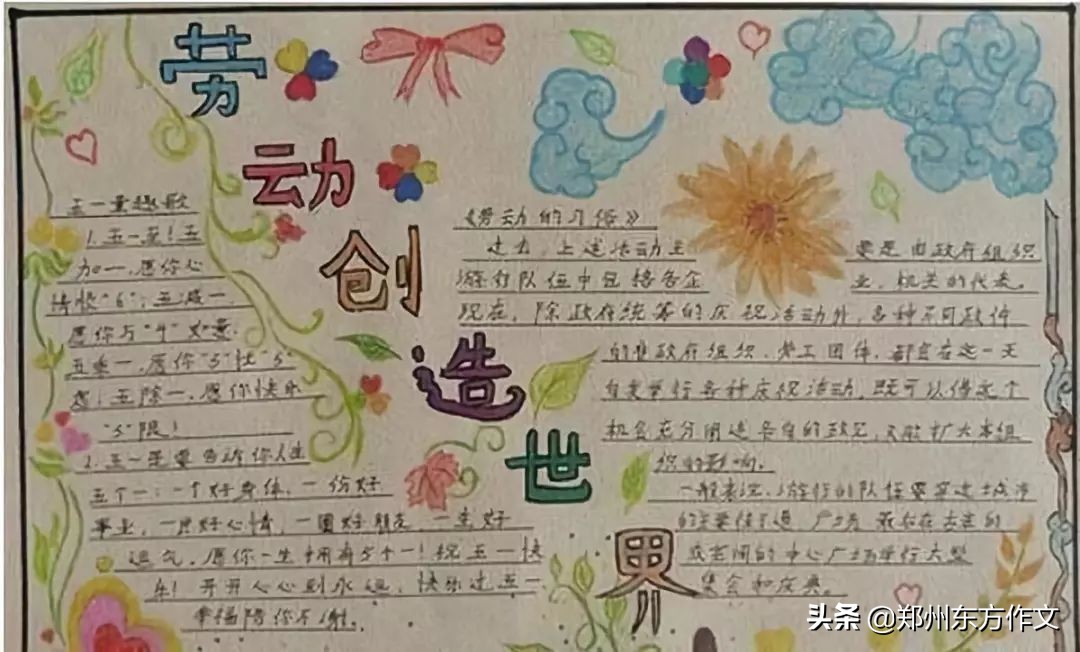 劳动创造世界
五一量趣歌
1.五一至！五
加一,愿你心
情快"6"；五减一,
愿你与"4"
五乘一,愿你"5"快"5"
虑；五除一,愿你快乐
"5"限！
2.五一是要告诉你人生
五个一：一个好身体,一份好
事业,一片好心情,一圈好朋友,一生好
运气,愿你一生拥有5个一！祝五一快
乐！开开心心到永远,快乐过五一
幸福陪你不谢。
《劳动的习俗》
过去,上述活动主要是由政府组织
游行队伍中包括各企业,机关的代表。
现在,除政府统筹的庆祝活动外,各种不同政体
的非政府组织、劳工团体,都会在这一天
自发举行各种庆祝活动,既可以借这个
机会充分阐述各自的政见,又能扩大本组
织的影响。
一般来说,游行的队伍要穿过城市
的主要街道、广场,最后在
的中心广场举行大型
集会和庆典。
头条 @郑州东方作文